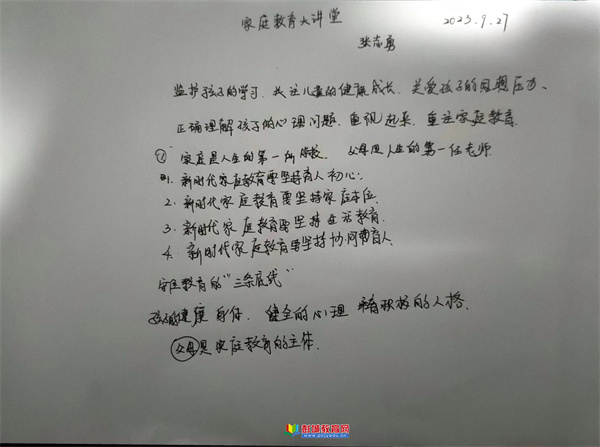 家庭教育大讲堂 2023.9.27
张志勇
监护孩子的学习、关注儿童的健康成长、关爱孩子的思想压力、
正确理解孩子的心理问题、重视起来、重注家庭教育
① 家庭是人生的第一所学校、父母是人生的第一任老师
1. 新时代家庭教育要坚持育人初心:
2. 新时代家庭教育要坚持家庭本位
3. 新时代家庭教育要坚持生活教育.
4. 新时代家庭教育要坚持协同育人.
家庭教育的"三条底线"
孩子的健康身体、健全的心理 积极的人格.
父母是家庭教育的主体.
彭城教育网